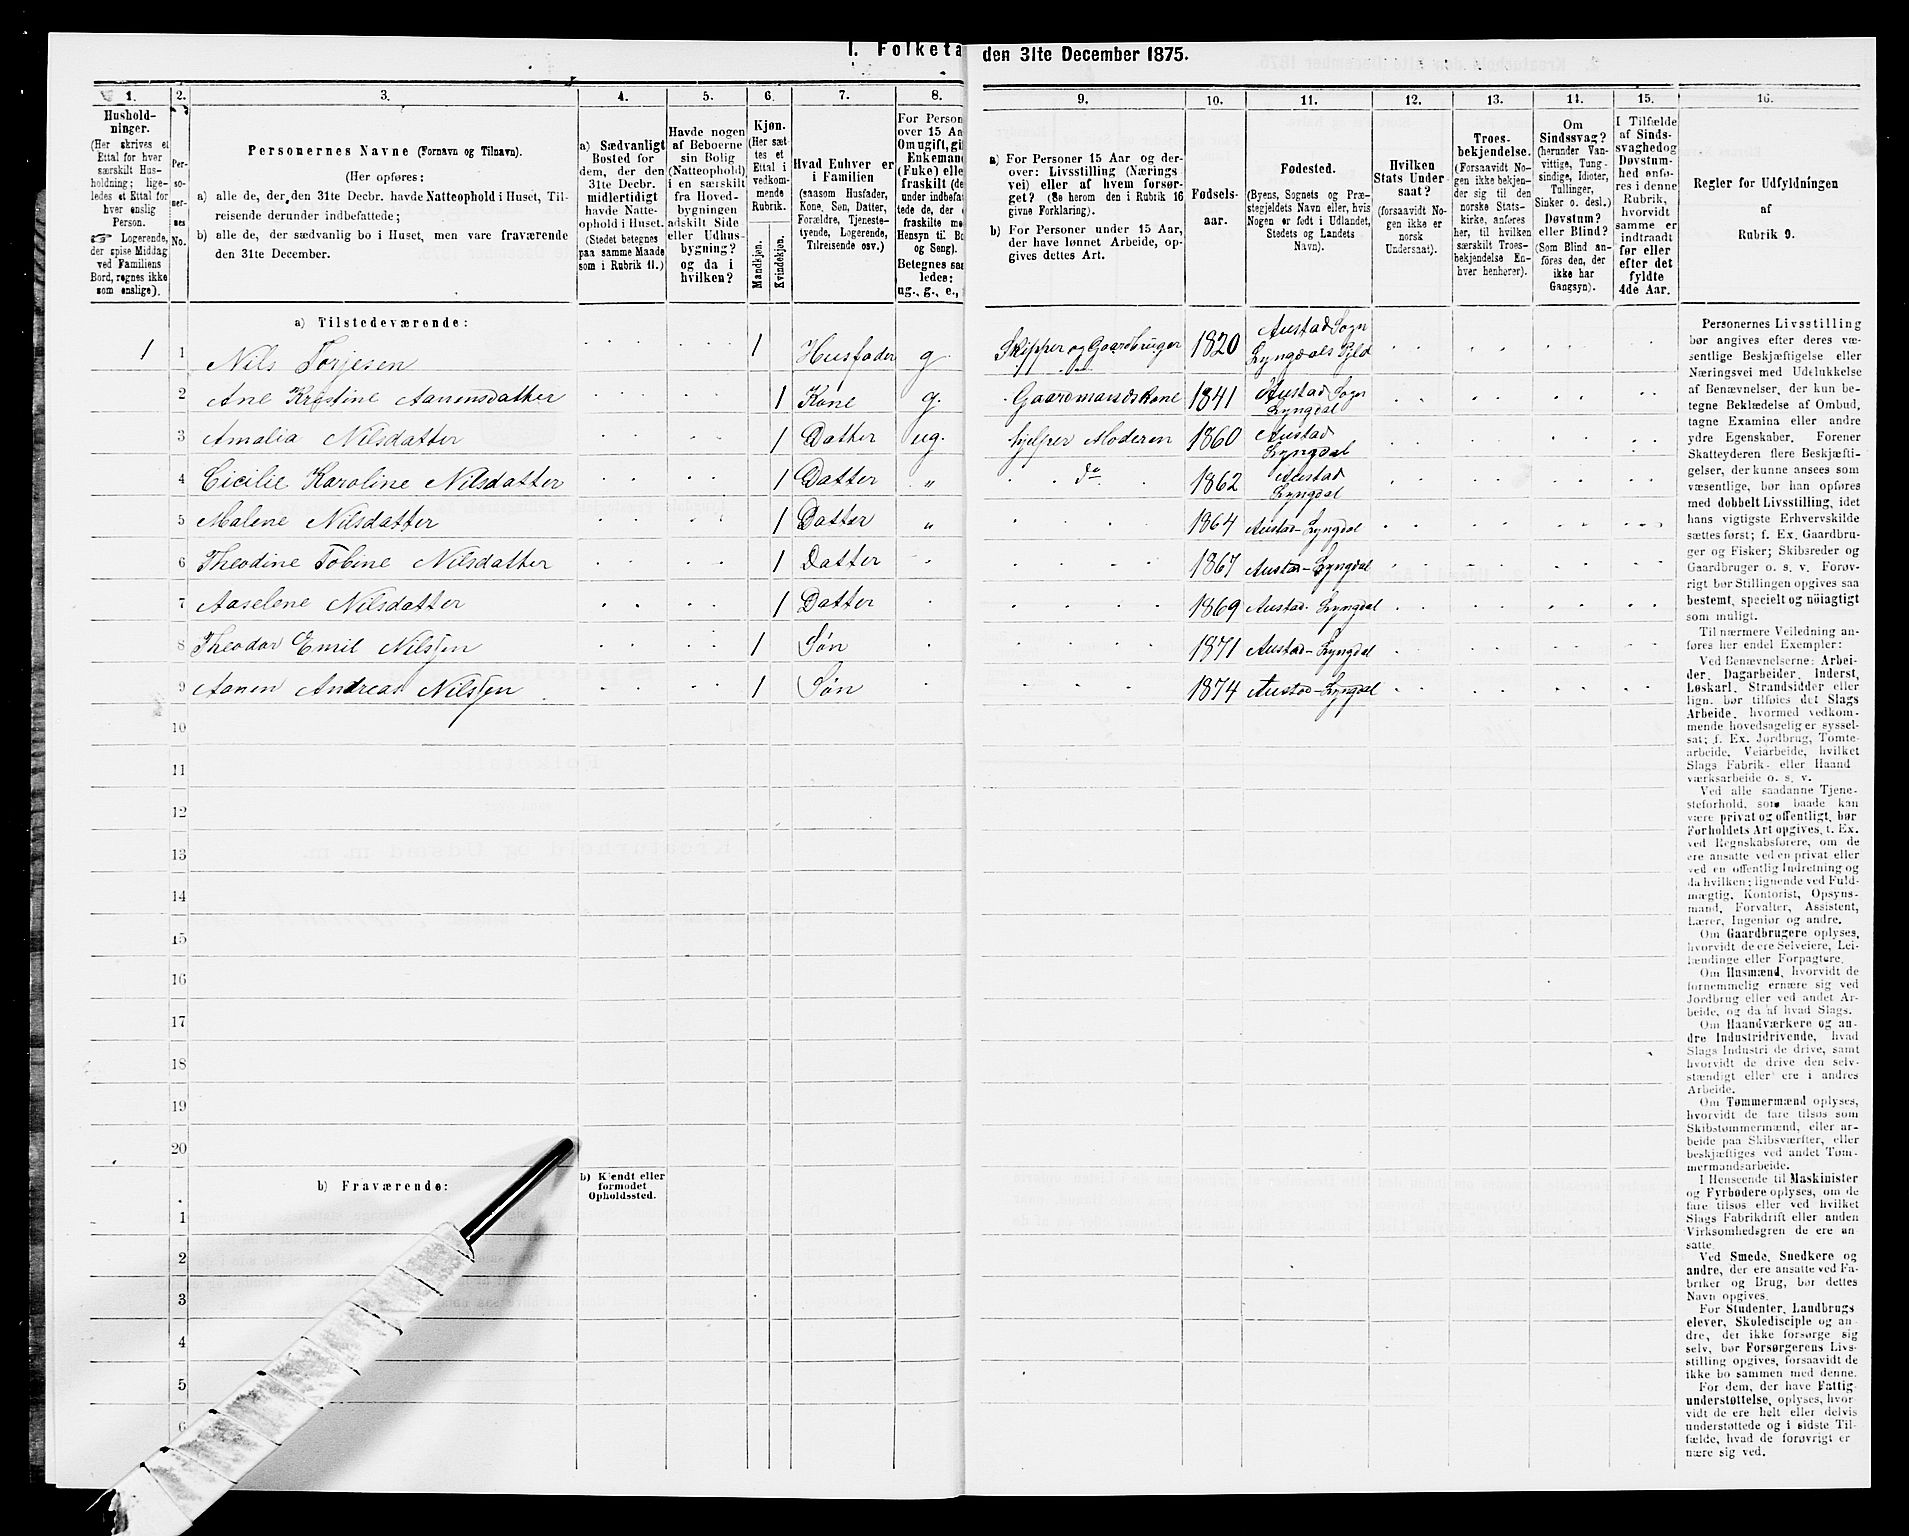 I. Folketa den 31te December 1875.
1. 2. 3. 4. 5. 6. 7. 8. 9. 10. 11. 12. 13. 14. 15. 16.
Hushold-
ninger.
(Her skrives et
Ettal for hver
særskilt Hus-
holdning; lige-
ledes et Ettal for
hver enslig
Person.
Logerende,
der spise Middag
ved Familiens
Bord, regnes ikke
som enslige).
Per-
so-
ner-
nes
No.
Personernes Navne (Fornavn og Tilnavn).
(Her opføres:
a) alle de, der den 31te Decbr. havde Natteophold i Huset, Til-
reisende derunder indbefattede;
b) alle de, der sædvanlig bo i Huset, men vare fraværende
den 31te December.
a) Sædvanligt
Bosted for
dem, der den
31te Decbr.
midlertidigt
havde Natte-
ophold i Huset.
(Stedet betegnes
paa samme Maade
som i Rubrik 11.)
Havde nogen
af Beboerne
sin Bolig
(Natteophold)
i en særskilt
fra Hoved-
bygningen
adskilt Side
eller Udhus-
bygning?
og da i
hvilken?
Kjøn.
(Her sæt-
tes et
Ettal i
vedkom-
mende
Rubrik.
Mandkjøn.
Kvindekjøn.
Hvad Enhver er
i Familien
(saasom Husfader,
Kone, Søn, Datter,
Forældre, Tjeneste-
tyende, Logerende,
Tilreisende osv.)
For Person
over 15 Aa
Om ugift, gif
Enkemand
(Enke) elle
fraskilt (de
under indbefat-
tede de, der e
fraskilte me
Hensyn til Bo
og Seng).
Betegnes saa-
ledes:
ug., g., e., f
a) For Personer 15 Aar og der-
over: Livsstilling (Nærings-
vei) eller af hvem forsør-
get? (Se herom den i Rubrik 16
givne Forklaring).
b) For Personer under 15 Aar,
der have lønnet Arbeide, op-
gives dettes Art.
Fødsels-
aar.
Fødested.
(Byens, Sognets og Præ-
stegjeldets Navn eller, hvis
Nogen er født i Udlandet,
Stedets og Landets
Navn).
Hvilken
Stats Under-
saat?
(forsaavidt No-
gen ikke er
norsk
Undersaat).
Troes-
bekjendelse.
(Forsaavidt No-
gen ikke bekjen-
der sig til den
norske Stats-
kirke, anføres
her, til hvilken
særskilt Troes-
bekjendelse En-
hver henhører).
Om
Sindssvag?
(herunder Van-
vittige, Tung-
sindige, Idioter,
Tullinger,
Sinker o. desl.)
Døvstum?
eller Blind?
(Som Blind an-
føres den, der
ikke har
Gangsyn).
I Tilfælde
af Sinds-
svaghed og
Døvstum-
hed anfø-
res i denne
Rubrik,
hvorvidt
samme er
indtraadt
før eller
efter det
fyldte
4de Aar.
Regler for Udfyldningen
af
Rubrik 9.
a) Tilstedeværende:
1 1 Nils Torjesen 1 Husfader g. Skipper og Gaardbruger 1820 Austad Sogn Lyngdals Pgld
2 Ane Kristine Aanensdatter 1 Kone g. Gaardmandskone 1841 Austad Sogn Lyngdal
3 Amalia Nilsdatter 1 Datter ug. hjelper Moderen 1860 Austad Lyngdal
4 Cicilie Karoline Nilsdatter 1 Datter " do 1862 Austad Lyngdal
5 Malene Nilsdatter 1 Datter " 1864 Austad-Lyngdal
6 Theodine Tobine Nilsdatter 1 Datter 1867 Austad-Lyngdal
7 Aaselene Nilsdatter 1 Datter 1869 Austad-Lyngdal
8 Theodor Emil Nilssen 1 Søn 1871 Austad-Lyngdal
9 Aanen Andreas Nilssen 1 Søn 1874 Austad-Lyngdal
10
11
12
13
14
15
16
17
18
19
20
b) Fraværende:
b) Kjendt eller
formodet
Opholdssted.
1
2
3
4
5
6
Personernes Livsstilling
bør angives efter deres væ-
sentlige Beskjæftigelse eller
Næringsvei med Udelukkelse
af Benævnelser, der kun be-
tegne Beklædelse af Ombud,
tagne Examina eller andre
ydre Egenskaber. Forener
Skatteyderen flere Beskjæfti-
gelser, der kunne ansees som
væsentlige, bør han opføres
med dobbelt Livsstilling, idet
hans vigtigste Erhvervskilde
sættes først; f. Ex. Gaardbru-
ger og Fisker; Skibsreder og
Gaardbruger o. s. v. Forøv-
rigt bør Stillingen opgives saa
bestemt, specielt og nöiagtigt
som muligt.
Til nærmere Veiledning an-
føres her endel Exempler:
Ved Benævnelserne: Arbei-
der, Dagarbeider, Inderst,
Løskarl, Strandsidder eller
lign. bør tilføies det Slags
Arbeide, hvormed vedkom-
mende hovedsagelig er syssel-
sat; f. Ex. Jordbrug, Tomte-
arbeide, Veiarbeide, hvilket
Slags Fabrik- eller Haand-
værksarbeide o. s. v.
Ved alle saadanne Tjene-
steforhold, som baade kan
være privat og offentligt, bør
Forholdets Art opgives, t. Ex.
ved Regnskabsførere, om de
ere ansatte ved en privat eller
ved en offentlig Indretning og
da hvilken; lignende ved Fuld-
mægtig, Kontorist, Opsyns-
mand, Forvalter, Assistent,
Lærer, Ingeniør og andre.
Om Gaardbrugere oplyses,
hvorvidt de ere Selveiere, Lei-
lændinge eller Forpagtere.
Om Husmænd, hvorvidt de
fornemmelig ernære sig ved
Jordbrug eller ved andet Ar-
beide, og da af hvad Slags.
Om Haandværkere og an-
dre Industridrivende, hvad
Slags Industri de drive, samt
hvorvidt de drive den selv-
stændigt eller ere i andres
Arbeide.
Om Tømmermænd oplyses,
hvorvidt de fare tilsøs som
Skibstømmermænd, eller ar-
beide paa Skibsværfter, eller
beskjæftiges ved andet Tøm-
mermandsarbeide.
I Henseende til Maskinister
og Fyrbødere oplyses, om de
fare tilsøs eller ved hvilket
Slags Fabrikdrift eller anden
Virksomhedsgren de ere an-
satte.
Ved Smede, Snedkere og
andre, der ere ansatte ved Fa-
briker og Brug, bør dettes
Navn opgives.
For Studenter, Landbrugs-
elever, Skoledisciple og an-
dre, der ikke forsørge sig
selv, bør Forsørgerens Livs-
stilling opgives, forsaavidt de
ikke bo sammen med denne.
For dem, der have Fattig-
understøttelse, oplyses, hvor-
vidt de ere helt eller delvis
understøttede og i sidste Til-
fælde, hvad de forøvrigt er-
nære sig ved.